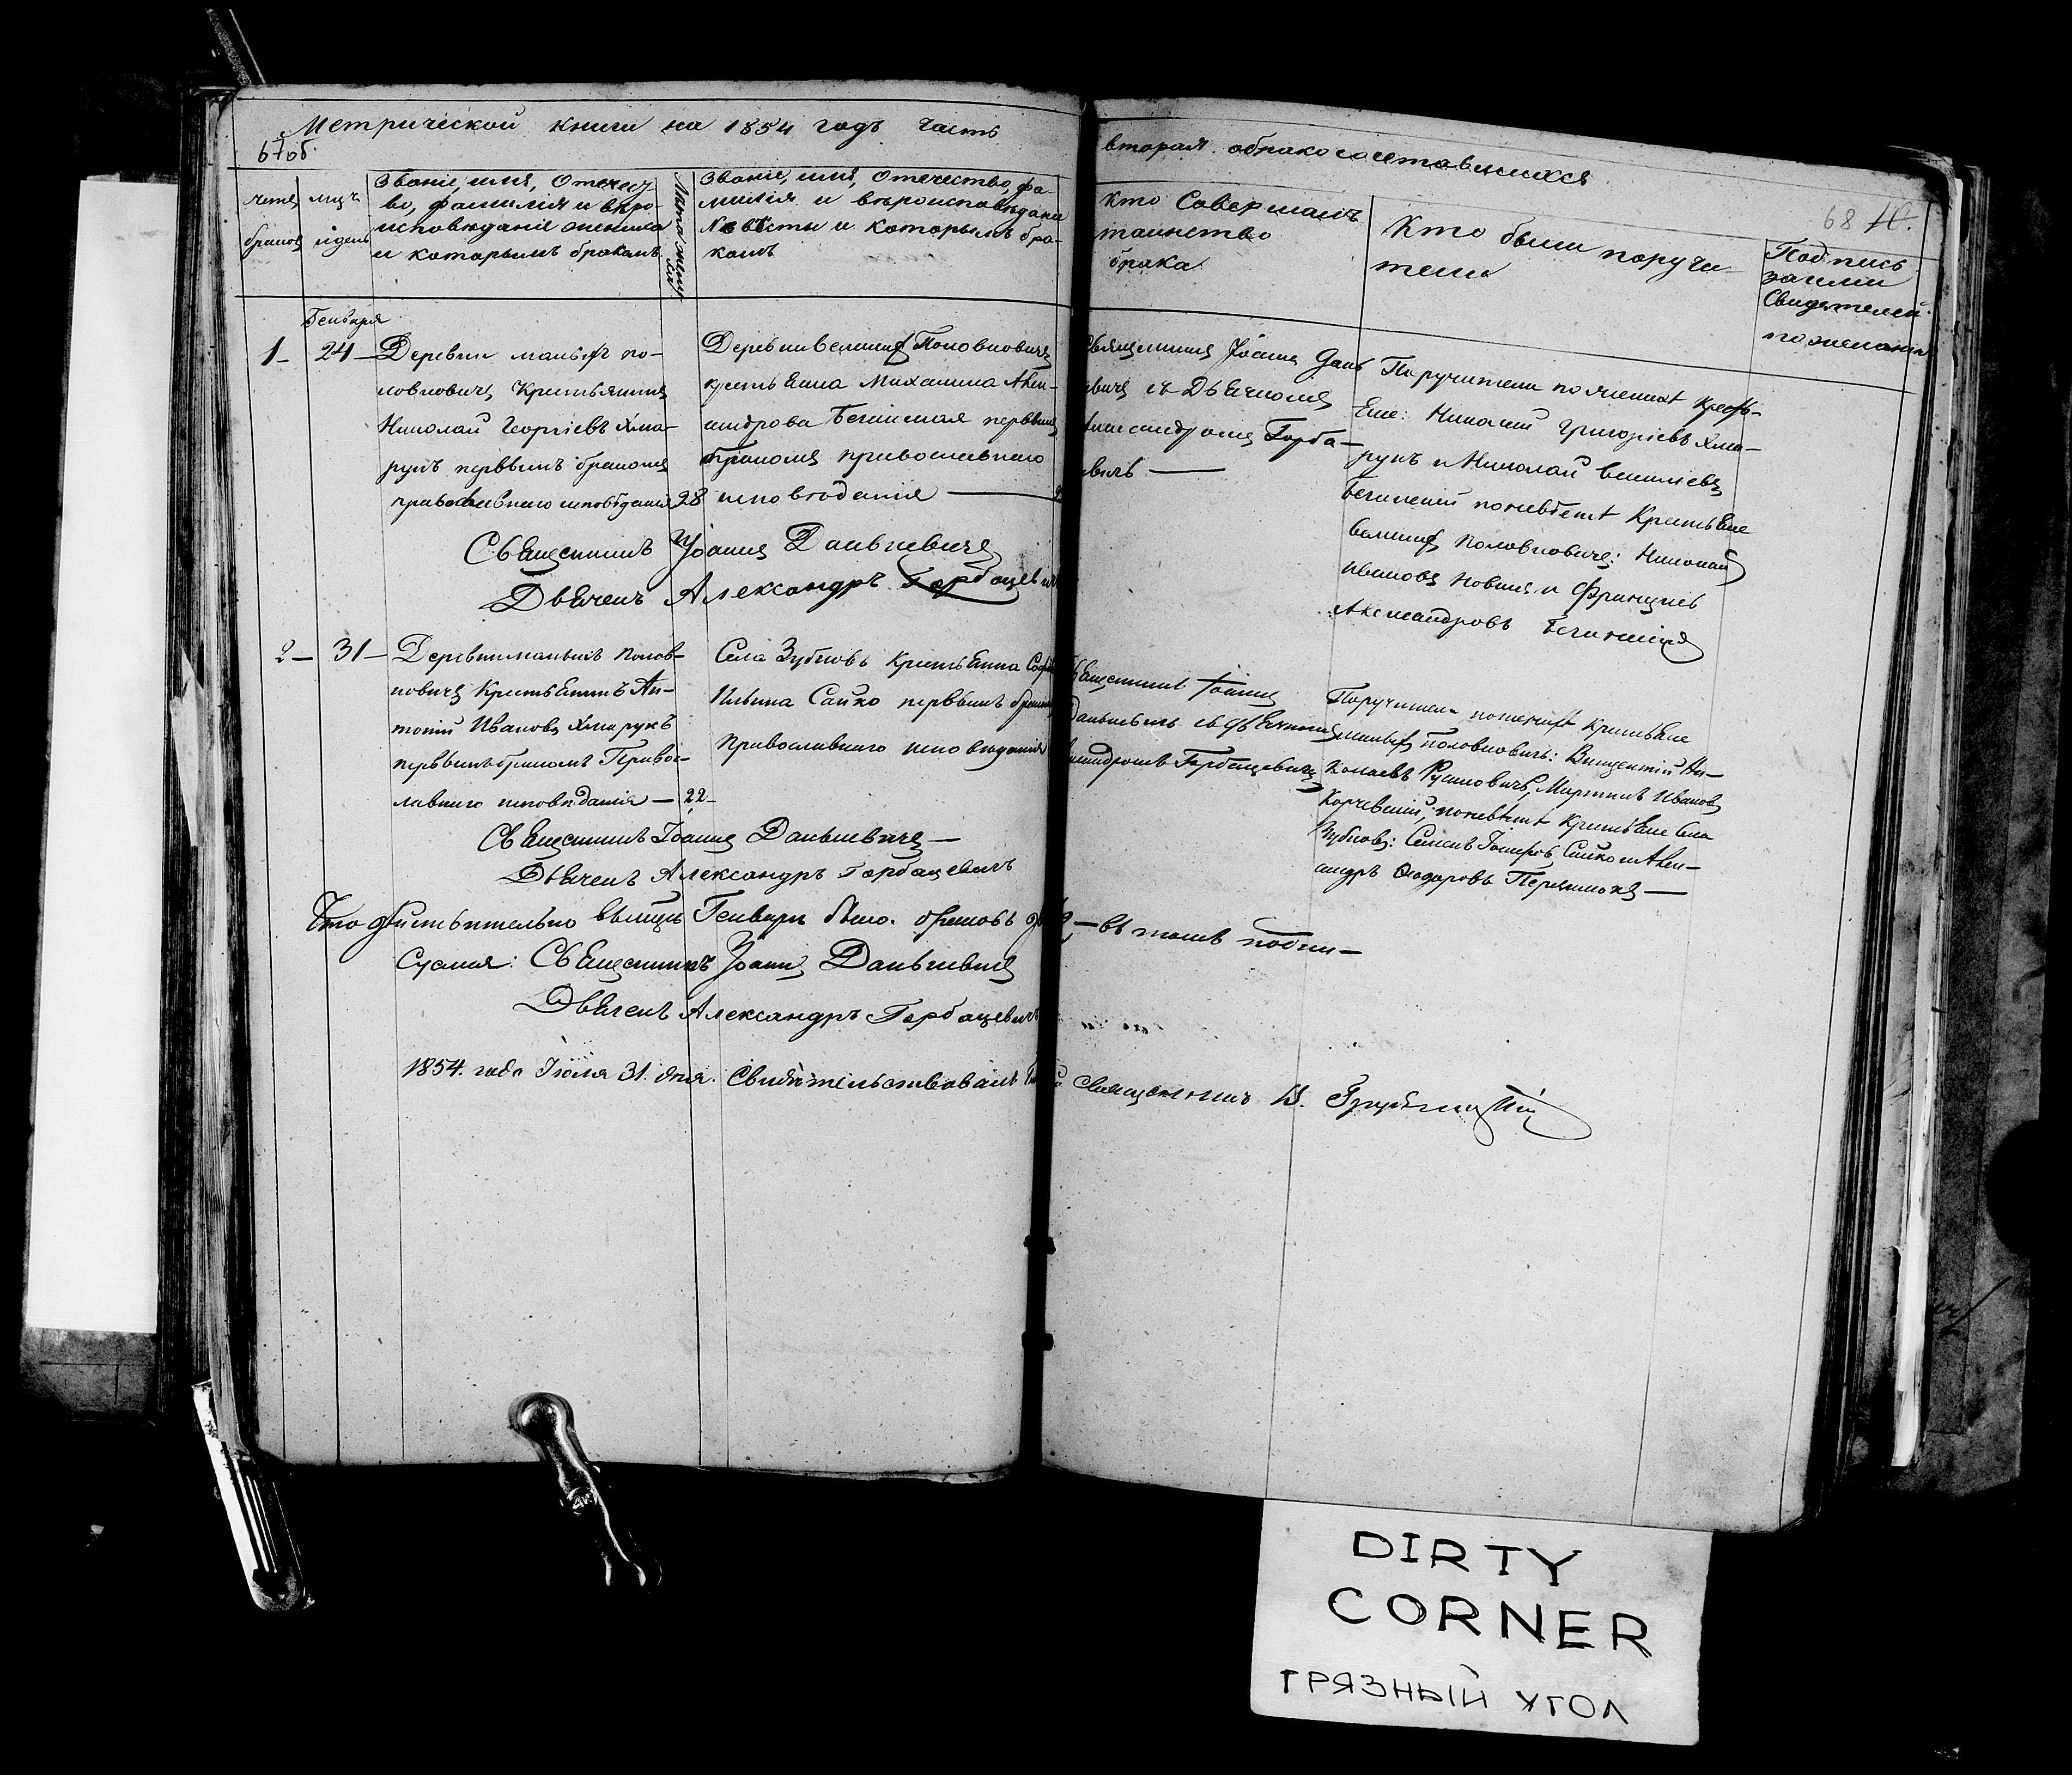 Метрической книги на 1854 годъ часть
67об.
вторая о бракосочетавшихся
68
счетъ
браковъ
мцъ
и день
Званіе, имя, отечест-
во, фамилія и вѣро-
исповѣданіе жениха
и которымъ бракомъ
Званіе, имя, отечество, фа-
милія и вѣроисповѣданіе
невѣсты и которымъ бра-
комъ
Кто совершалъ
таинство
брака
Кто были поручи-
тели
Подпись
Свидетелей
по желанію
Генваря
1 — 24 — Деревни малыхъ по-
ловковичъ крестьянинъ
Николай Георгіевъ Хма-
рукъ первымъ бракомъ
православнаго исповѣданія 28
Деревни великихъ Половковичъ
крестьянка Михалина Алек-
андрова первымъ
бракомъ православнаго
исповѣданія —
Священникъ Іоаннъ Дань
евичъ съ Дьячкомъ
Александромъ Горба-
евичъ —
Поручители по женихѣ кресть-
яне: Николай Григоріевъ Хма-
рукъ и Николай Василіевъ
по невѣстѣ Крестьяне
великихъ Половковичъ: Николай
Ивановъ и Францискъ
Александровъ
Священникъ Іоаннъ Данькевичъ
Дьячекъ Александръ Горбацевичъ
2 — 31 — Деревни малыхъ Полов-
ковичъ Крестьянинъ Ан-
тоній Ивановъ Хмарукъ
первымъ бракомъ Право-
славнаго исповѣданія — 22 —
Села Зубковъ крестьянка Софія
Ильина Сайко первымъ бракомъ
Православнаго исповѣданія
Священникъ Іоаннъ
Данькевичъ съ дьячкомъ
Александромъ Горбацевичъ
Поручители по женихѣ крестьяне
малыхъ Половковичъ: Викентій
Мартинъ Ивановъ
по невѣстѣ Крестьяне села
Зубковъ: Семенъ Сайко и Алек-
андръ Ѳеодоровъ —
Священникъ Іоаннъ Данькевичъ —
Дьячекъ Александръ Горбацевичъ
Что дѣйствительно въ мцѣ Генварѣ было браковъ 2 — въ томъ подпи —
Священникъ Іоаннъ Данькевичъ
Дьячекъ Александръ Горбацевичъ
1854. года Іюля 31. дня. Свидѣтельствовалъ Священникъ В.
DIRTY
CORNER
ГРЯЗНЫЙ УГОЛ